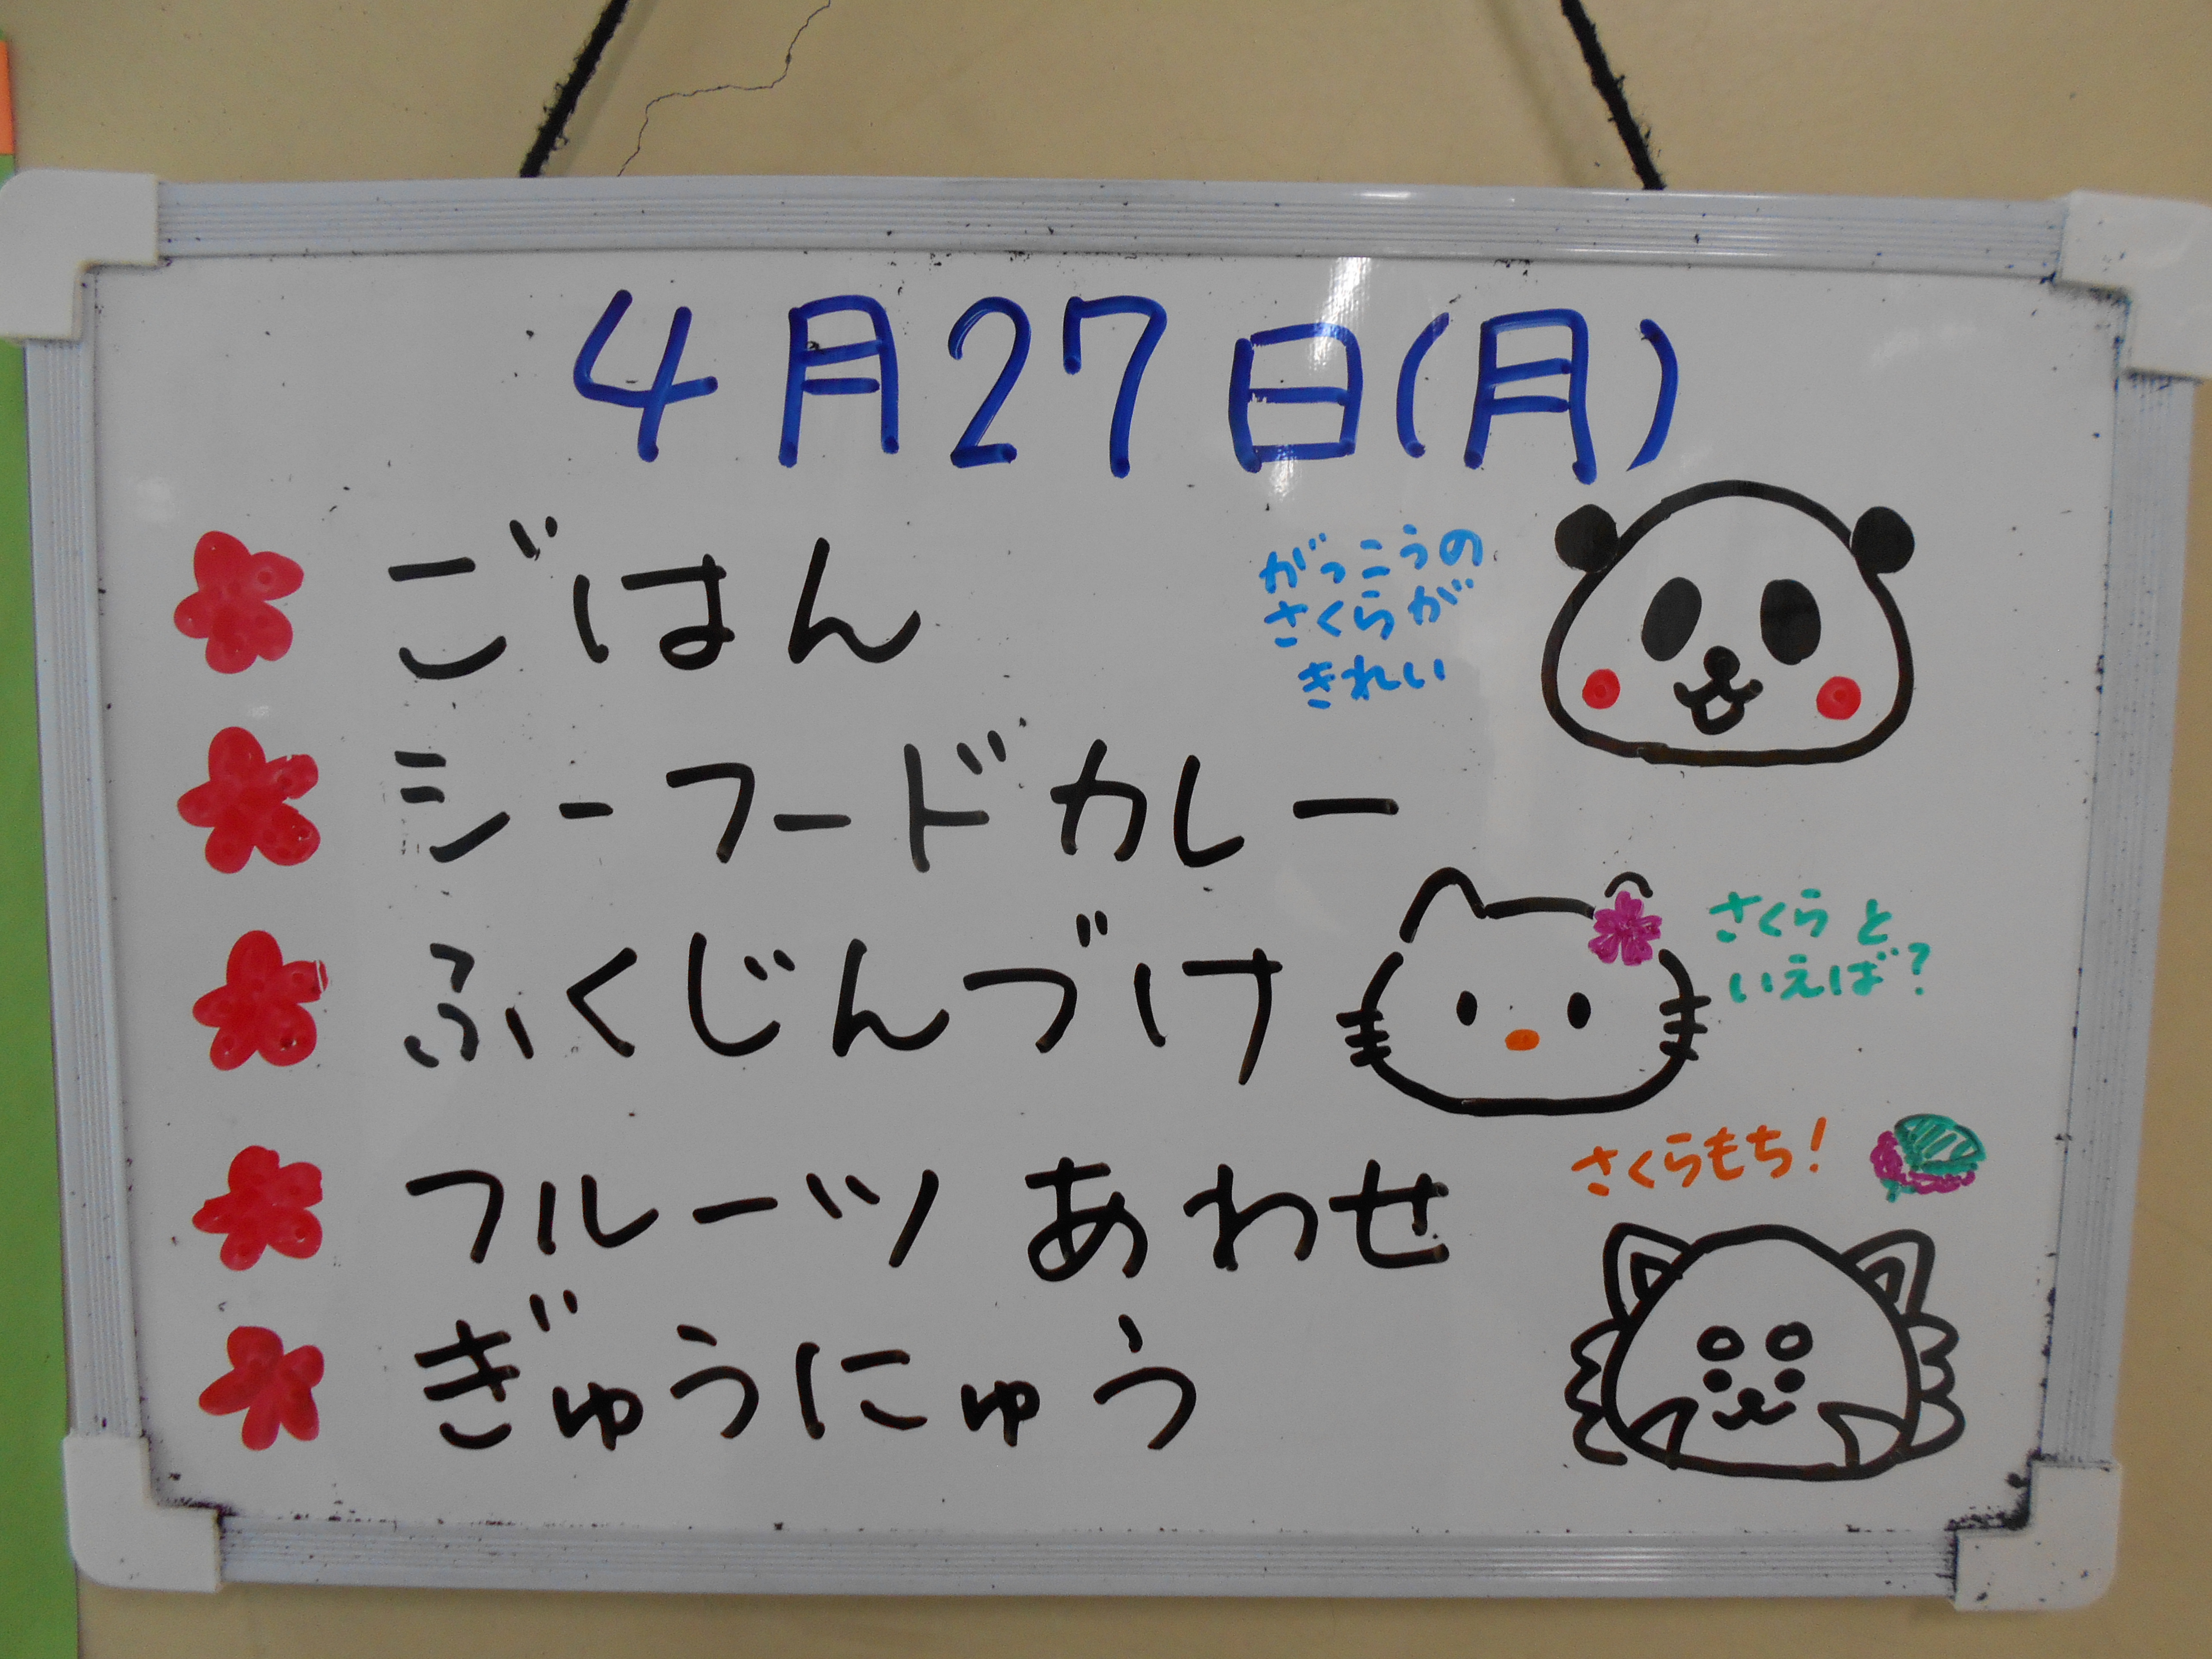 4月27日(月)
ごはん
がっこうの
さくらが
きれい
シーフードカレー
ふくじんづけ
さくらと
いえば?
さくらもち!
フルーツ あわせ
ぎゅうにゅう